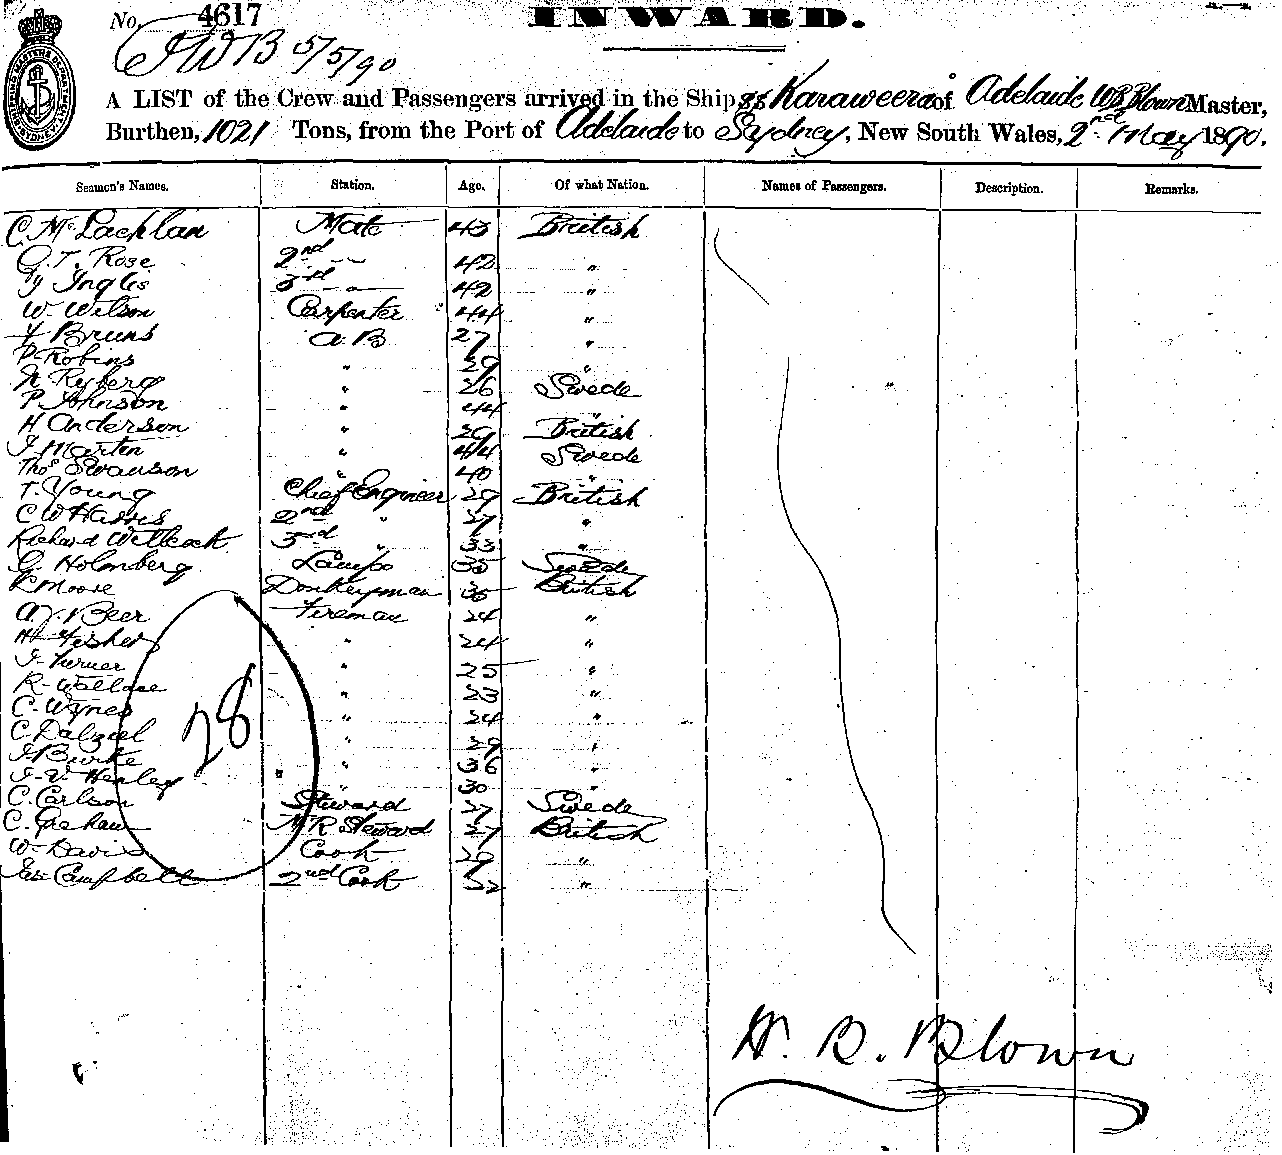 No. 4617
INWARD.
5/5/90
A LIST of the Crew and Passengers arrived in the Ship ss Karaweera of Adelaide W.B. Blown Master,
Burthen, 1021 Tons, from the Port of Adelaide to Sydney, New South Wales, 2nd May 1890.
Seamen's Names. Station. Age. Of what Nation. Names of Passengers. Description. Remarks.
C. McLachlan Mate 43 British
G.T. Rose 2nd — 42 "
Inglis 3rd — 42 "
W. Wilson Carpenter 44 "
Bruns A.B 27 "
P. Robins " 29 "
Ryberg " 26 Swede
P. Johnson " 44 "
H Anderson " 29 British
J Martin " 44 Swede
Thos Swanson " 40 "
T. Young Chief Engineer 29 British
C W Harris 2nd " 27 "
Richard Wellcock 3rd " 33 "
G. Holmberg Lamps 35 Swede
R Moore Donkeyman 35 British
A.J. Beer Fireman 24 "
H Fisher " 24 "
J. Turner " 25 "
R. Wallace " 23 "
C. Wynes " 24 "
C. Dalziel " 29 "
J. Burke " 36 "
J. V. Henley " 30 "
C. Carlson Steward 27 Swede
C. Graham M.R Steward 27 British
W. Davis Cook 29 "
Campbell 2nd Cook 32 "
28
W. B. Blown